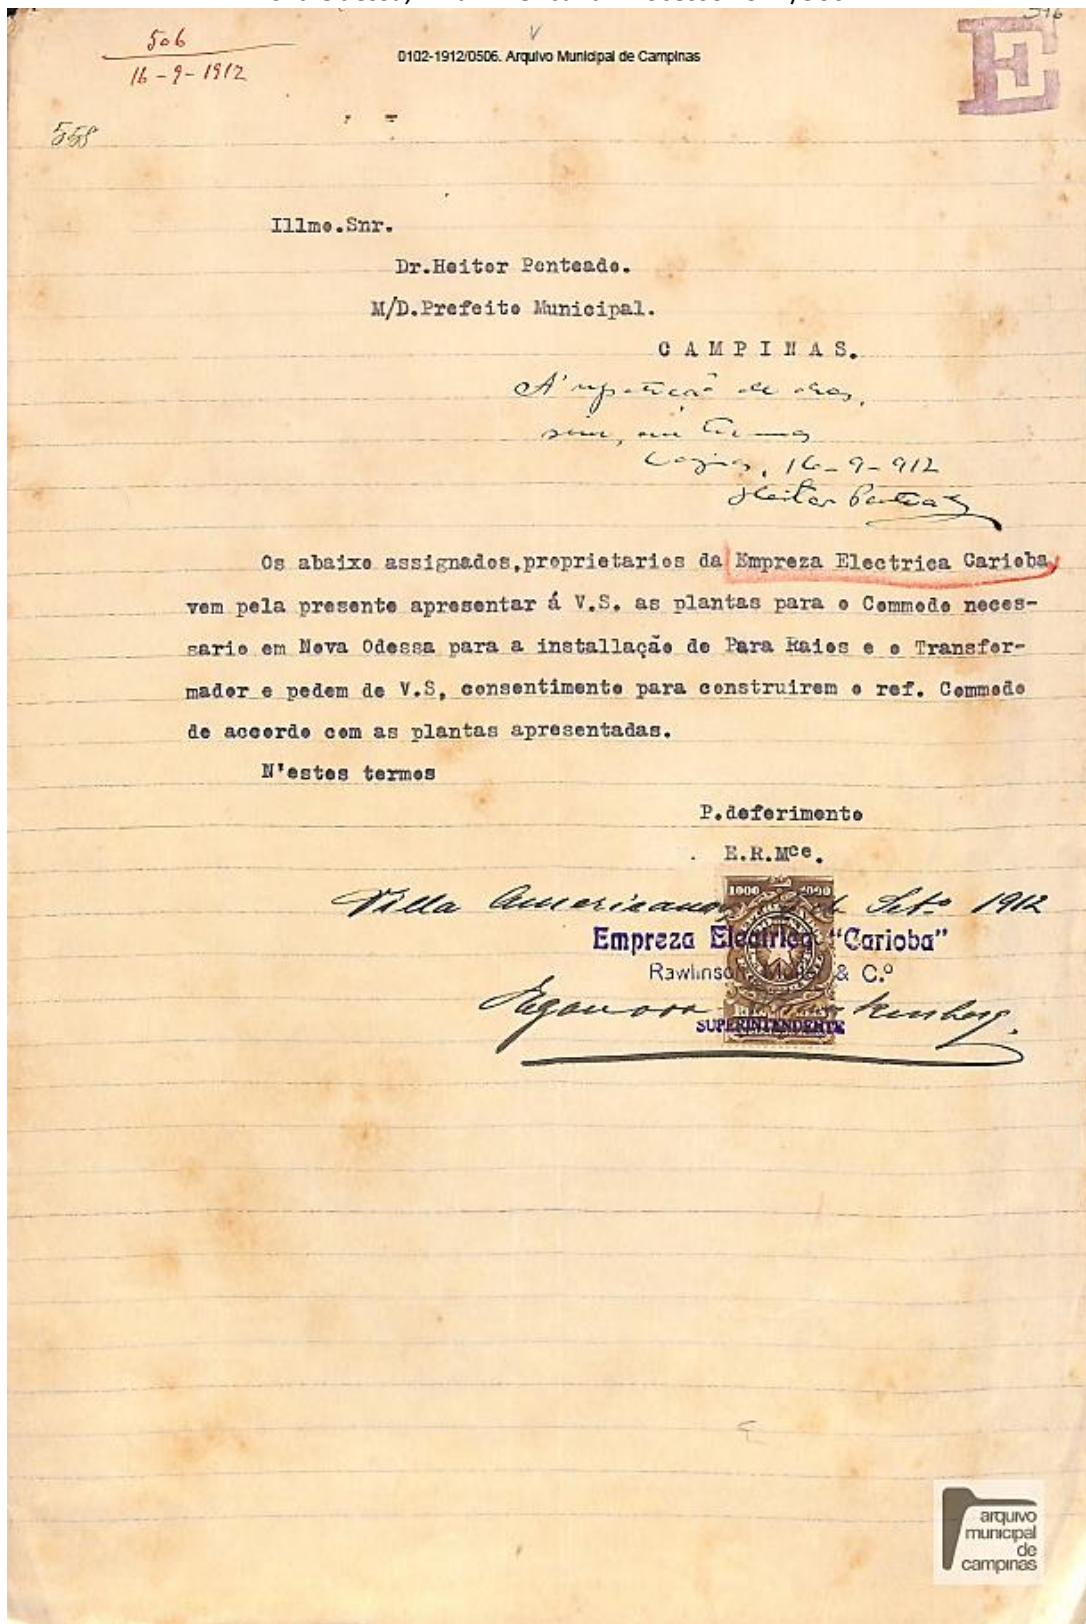 506
16-9-1912
0102-1912/0506. Arquivo Municipal de Campinas
E
558
Illmo.Snr.
Dr.Heitor Penteado.
M/D.Prefeito Municipal.
CAMPINAS.
A' repartição de obras,
sim, em termos
16-9-912
Heitor Penteado
Os abaixo assignados,proprietarios da Empreza Electrica Carioba,
vem pela presente apresentar á V.S. as plantas para o Commodo neces-
sario em Nova Odessa para a installação de Para Raios e o Transfor-
mador e pedem de V.S, consentimento para construirem o ref. Commodo
de accordo com as plantas apresentadas.
N'estes termos
P.deferimento
E.R.Mce.
Villa Americana, Set.o 1912
1000
Empreza Electrica "Carioba"
Rawlinson Müller & C.º
SUPERINTENDENTE
arquivo
municipal
de
campinas